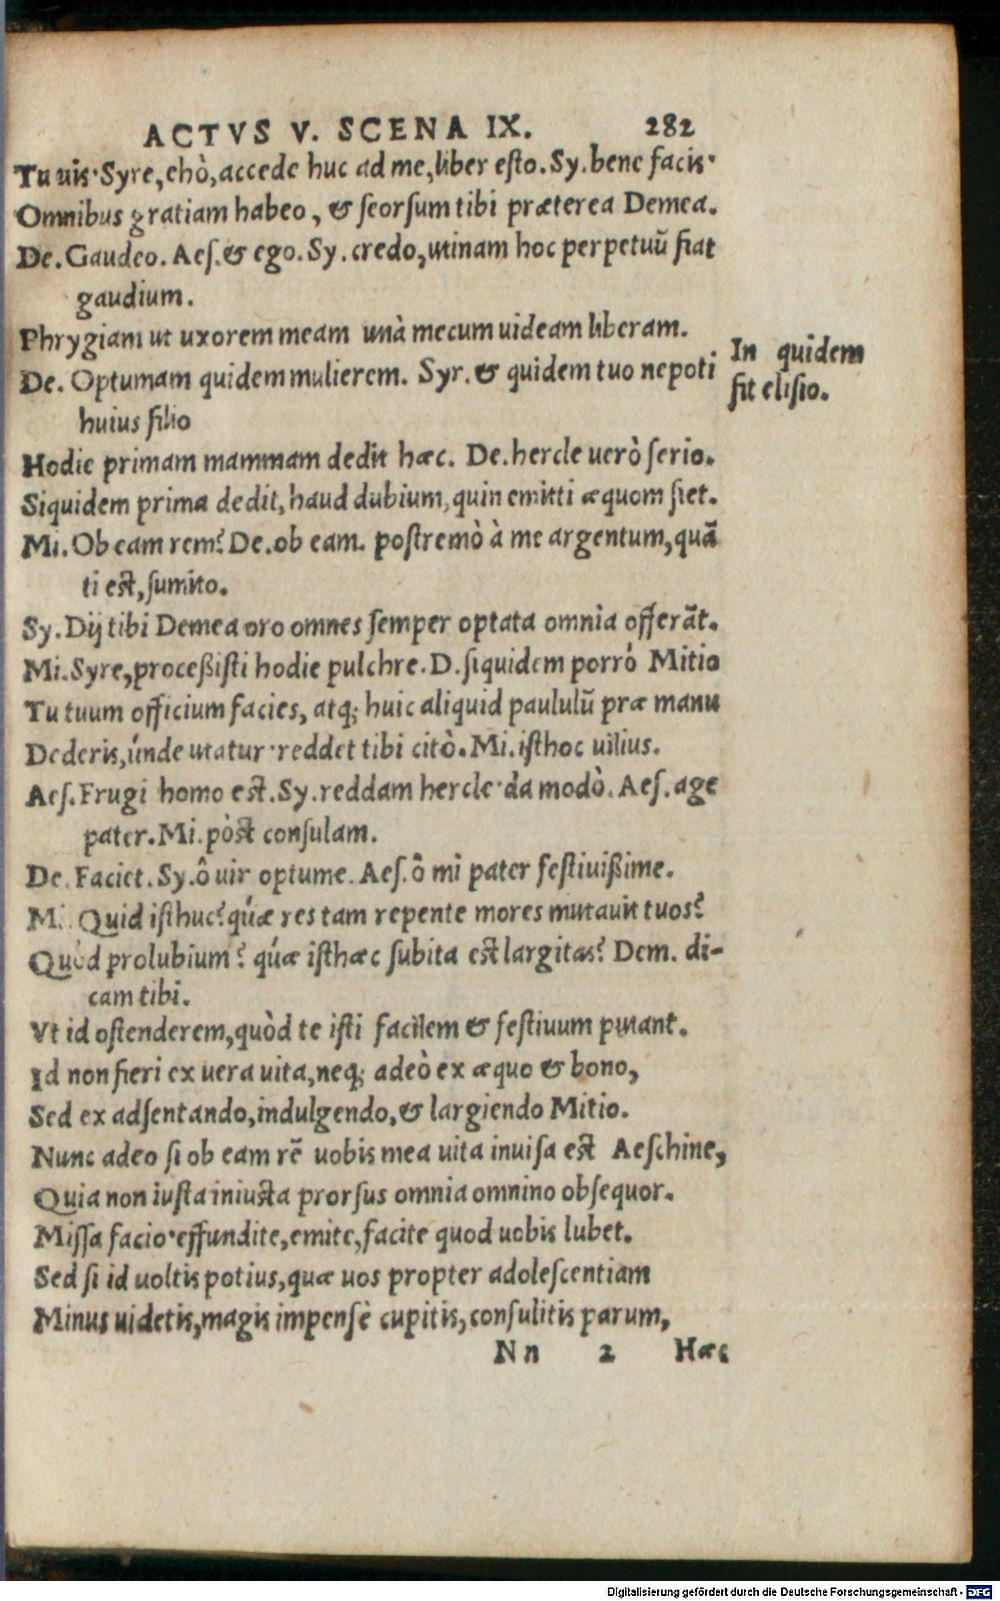 ACTVS V. SCENA IX. 282
Tu uis·Syre, ehò, accede huc ad me, liber esto. Sy. bene facis·
Omnibus gratiam habeo, & seorsum tibi præterea Demea.
De. Gaudeo. Aes. & ego. Sy. credo, utinam hoc perpetuū fiat
gaudium.
Phrygiam ut uxorem meam unà mecum uideam liberam.
De. Optumam quidem mulierem. Syr. & quidem tuo nepoti
huius filio
In quidem
fit elisio.
Hodie primam mammam dedit hæc. De. hercle uerò serio.
Siquidem prima dedit, haud dubium, quin emitti æquom siet.
Mi. Ob eam rem? De. ob eam. postremò à me argentum, quā
ti est, sumito.
Sy. Dij tibi Demea oro omnes semper optata omnia offerāt.
Mi. Syre, proceßisti hodie pulchre. D. siquidem porrò Mitio
Tu tuum officium facies, atq; huic aliquid paululū præ manu
Dederis, únde utatur·reddet tibi citò. Mi. isthoc uilius.
Aes. Frugi homo est. Sy. reddam hercle·da modò. Aes. age
pater. Mi. pòst consulam.
De. Faciet. Sy. ô uir optume. Aes. ô mi pater festiuißime.
Mi. Quid isthuc? quæ res tam repente mores mutauit tuos?
Quòd prolubium? quæ isthæc subita est largitas? Dem. di-
cam tibi.
Vt id ostenderem, quòd te isti facilem & festiuum putant.
Id non fieri ex uera uita, neq; adeò ex æquo & bono,
Sed ex adsentando, indulgendo, & largiendo Mitio.
Nunc adeo si ob eam rē uobis mea uita inuisa est Aeschine,
Quia non iusta iniusta prorsus omnia omnino obsequor.
Missa facio·effundite, emite, facite quod uobis lubet.
Sed si id uoltis potius, quæ uos propter adolescentiam
Minus uidetis, magis impensè cupitis, consulitis parum,
Nn 2 Hæc
Digitalisierung gefördert durch die Deutsche Forschungsgemeinschaft - DFG